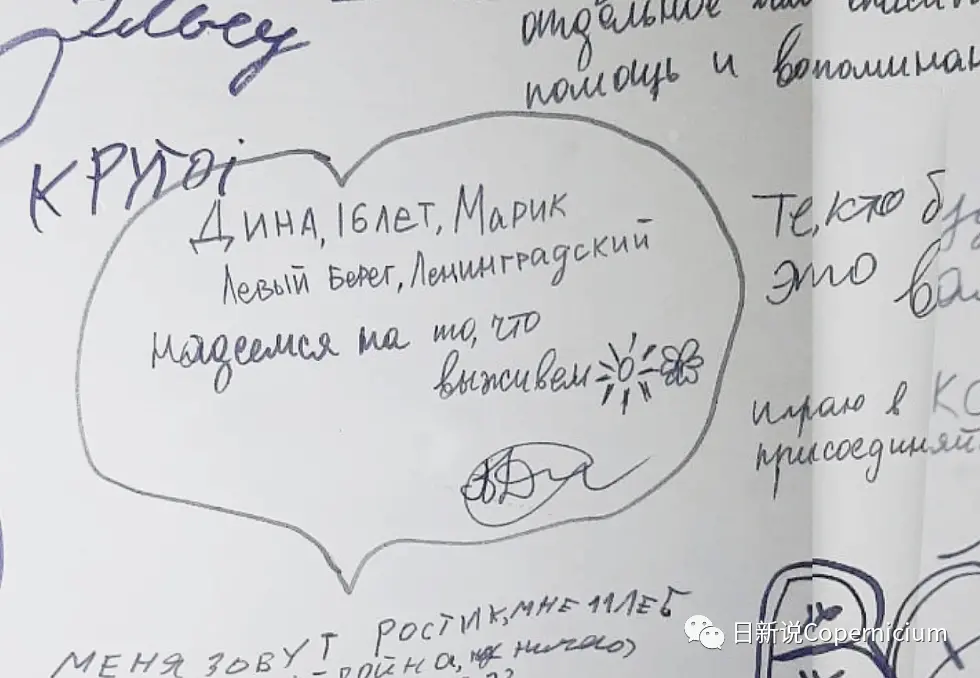 отдельное
помощь и
КРУТО
ДИНА, 16 ЛЕТ, МАРИК
ЛЕВЫЙ БЕРЕГ, ЛЕНИНГРАДСКИЙ
надеемся на то, что
выживем
Те, кто
это
играю в
присоединяй
МЕНЯ ЗОВУТ РОСТИК, МНЕ 11 ЛЕТ
日新说Copernicium